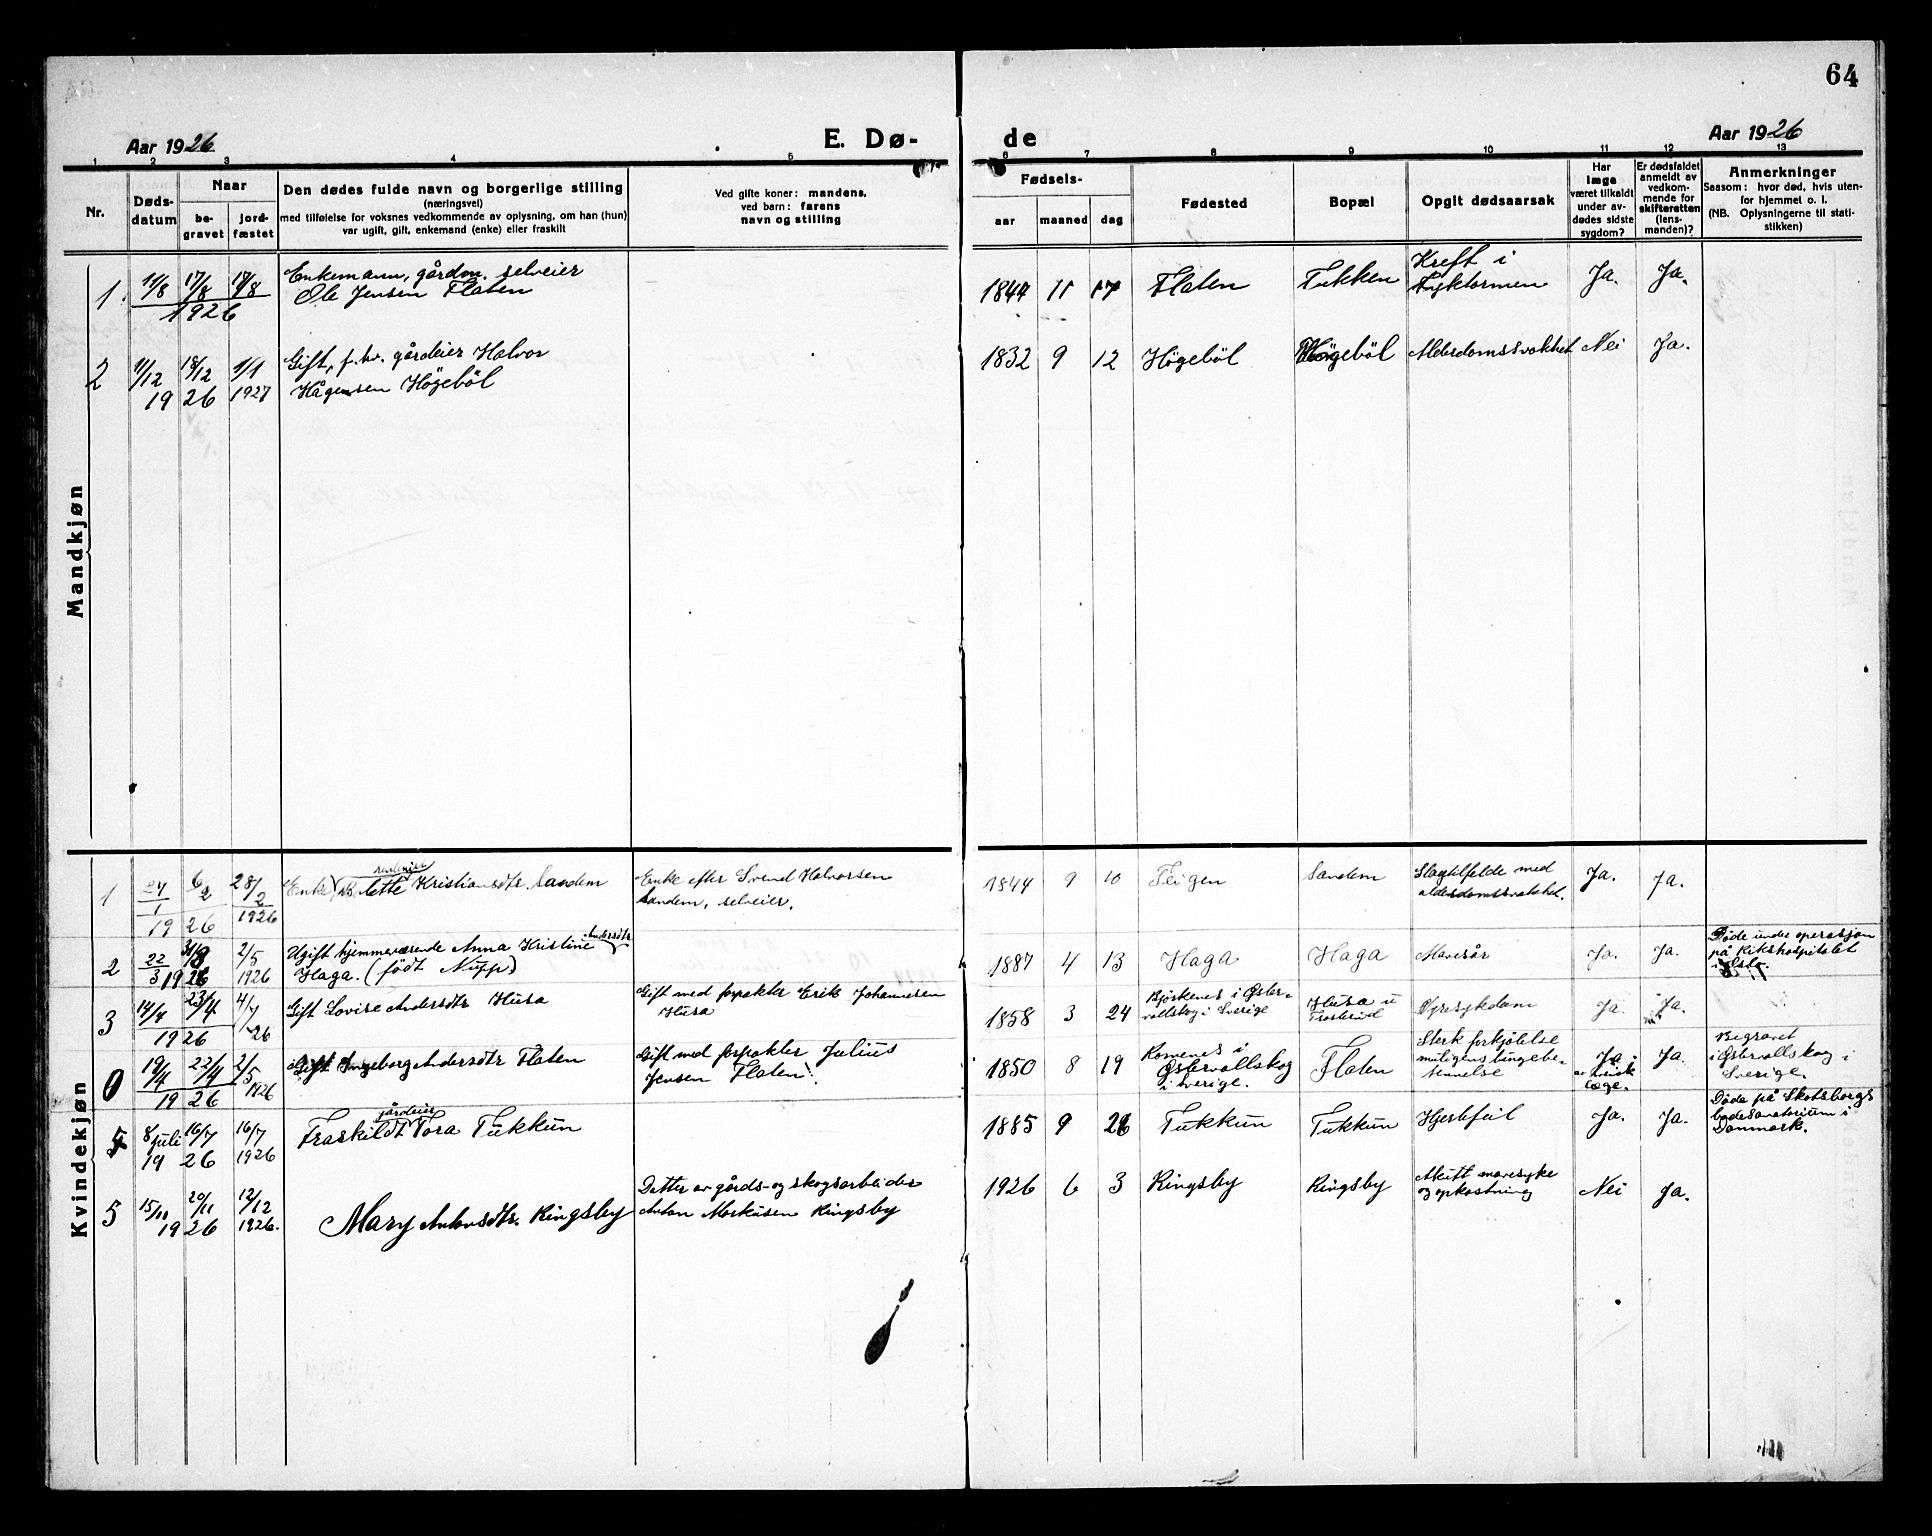 64
Aar 1926
E. Dø-
de
Aar 1926
1 2 3 4 5 6 7 8 9 10 11 12 13
Nr.
Døds-
datum
Naar
be-
gravet
jord-
fæstet
Den dødes fulde navn og borgerlige stilling
(næringsvei)
med tilføielse for voksnes vedkommende av oplysning, om han (hun)
var ugift, gift, enkemand (enke) eller fraskilt
Ved gifte koner: mandens,
ved barn: farens
navn og stilling
Fødsels-
aar maaned dag
Fødested
Bopæl
Opgit dødsaarsak
Har
læge
været tilkaldt
under av-
dødes sidste
sygdom?
Er dødsfaldet
anmeldt av
vedkom-
mende for
skifteretten
(lens-
manden)?
Anmerkninger
Saasom: hvor død, hvis uten-
for hjemmet o. l.
(NB. Oplysningerne til stati-
stikken)
Mandkjøn
1 11/8 17/8 17/8 1926
Enkemann, gårdm. selveier
Ole Jensen Flaten
1844 11 17 Flaten Tukken
Kreft i
Tyktarmen
Ja. Ja.
2 11/12 18/12 1/1
19 26 1927
Gift, f. hv. gårdeier Halvor
Hågensen Högeböl
1832 9 12 Högeböl Högeböl Alderdomssvakhet Nei Ja.
Kvindekjøn
1 27/1 6/2 28/2
19 26 1926
Enke Kristiansdtr. Sandem
Enke efter Svend Halvorsen
Sandem, selveier.
1844 9 10 Teigen Sandem
Slagtilfelde med
alderdomssvakhet.
Ja. Ja.
2 22/3 31/3 2/5
1926 1926
Ugift hjemmeværende Anna Kristine Andersdtr
Haga. (født Nupp)
1887 4 13 Haga Haga Mavesår Ja. Ja.
Døde under operasjon
på Rikshospitalet
i Oslo.
3 14/4 23/4 4/7
19 26 26
Gift Lovise Andersdtr Husa
Gift med forpakter Erik Johannesen
Husa
1858 3 24
Bjørkenes i Øster-
vallskog i Sverige
Husa u
Øresykdom Ja. Ja.
0 19/4 22/4 2/5
19 26 1926
Gift Ingeborg Andersdtr Flaten
Gift med forpakter Julius
Jensen Flaten
1850 8 19
Kornenes i
Østervallskog
i Sverige.
Flaten
Sterk forkjølelse
muligens lungebe-
tennelse
Ja
læge.
Ja.
Begravet
i Østervallskog i
Sverige.
5 8 juli 16/7 16/7
19 26 1926
gårdeier
Fraskildt Tora Tukkun
1885 9 26 Tukkun Tukkun Hjertefeil Ja. Ja.
Døde på Skotsborgs
badesanatorium i
Danmark.
5 15/11 20/11 12/12
19 26 1926.
Mary Antonsdtr. Ringsby
Datter av gårds- og skogsarbeider
Anton Markusen Ringsby
1926 6 3 Ringsby Ringsby
Akutt mavesyke
og opkastning
Nei Ja.